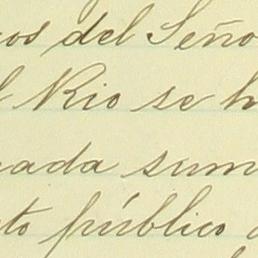 os del Seño
l Rio se h
ada sum
to público